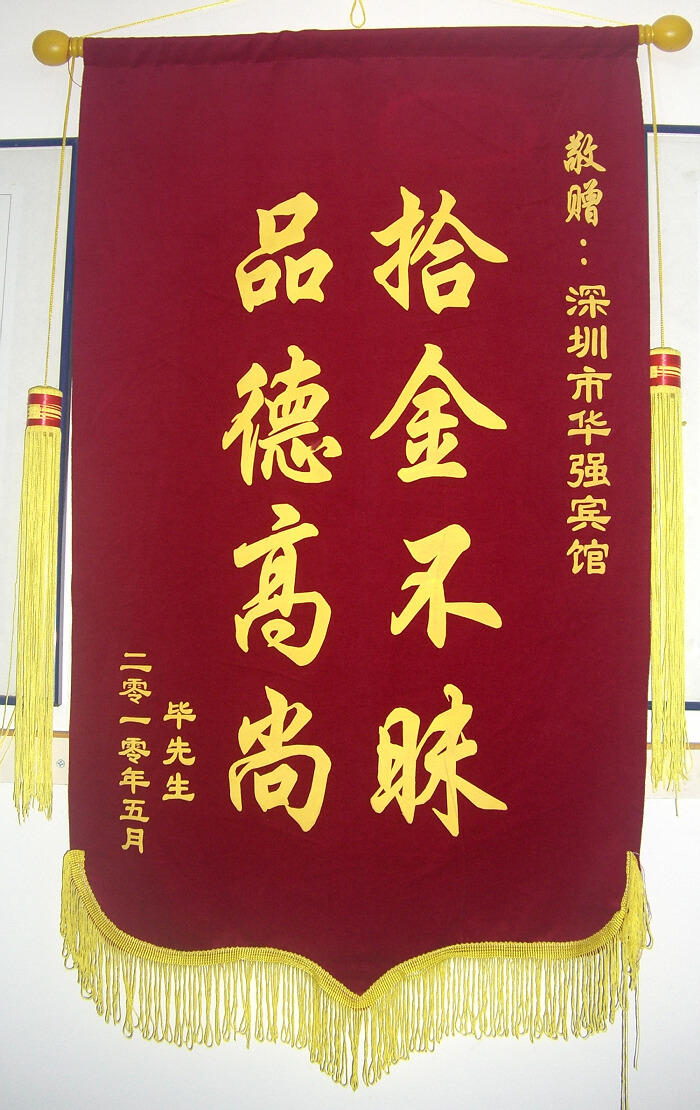 敬赠：深圳市华强宾馆
拾金不昧
品德高尚
毕先生
二零一零年五月